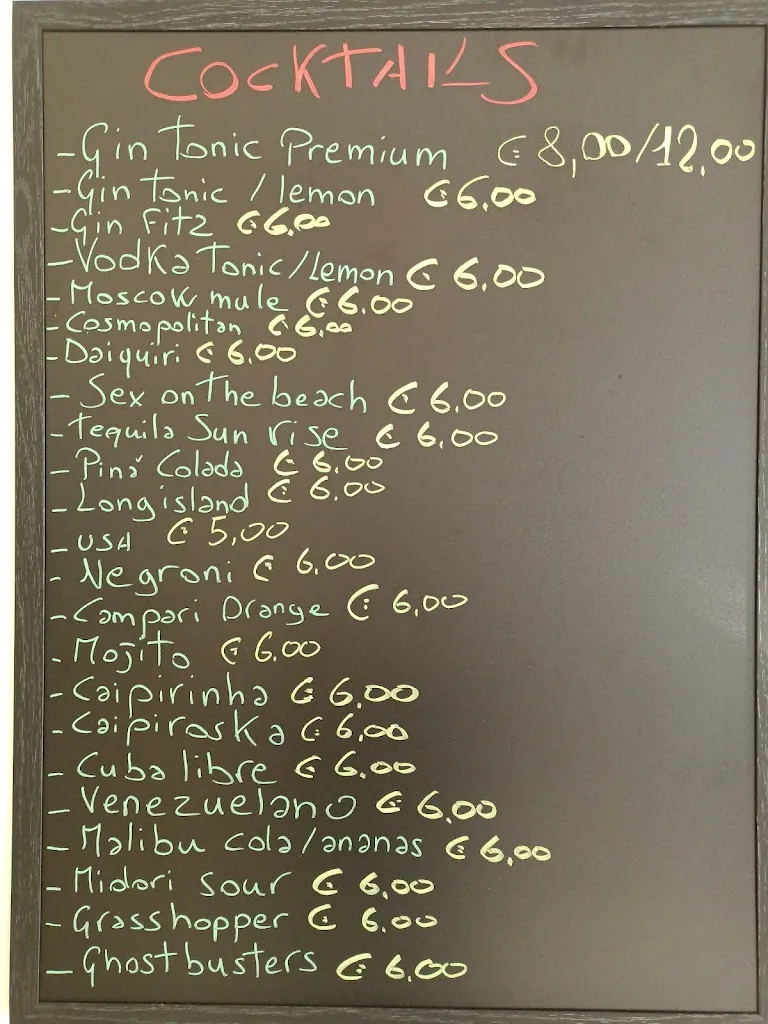 COCKTAILS
- Gin Tonic Premium € 8,00/12,00
- Gin Tonic / lemon € 6,00
- Gin Fitz € 6,00
- Vodka Tonic/Lemon € 6,00
- Moscow mule € 6,00
- Cosmopolitan € 6,00
- Daiquiri € 6,00
- Sex on The beach € 6,00
- Tequila Sun rise € 6,00
- Pina' Colada € 6,00
- Long island € 6,00
- USA € 5,00
- Negroni € 6,00
- Campari Orange € 6,00
- Mojito € 6,00
- Caipirinha € 6,00
- Caipiroska € 6,00
- Cuba libre € 6,00
- Venezuelano € 6,00
- Malibu cola/ananas € 6,00
- Midori sour € 6,00
- Grasshopper € 6,00
- Ghostbusters € 6,00